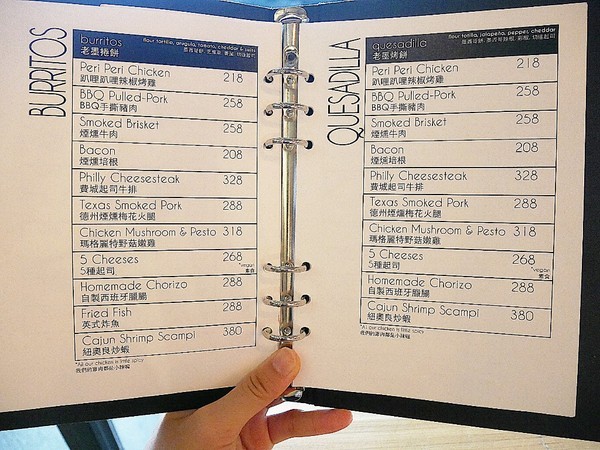 BURRITOS
burritos
flour tortilla, arugula, tomato, cheddar & salsa
老墨捲餅
Peri Peri Chicken 218
趴哩趴哩辣椒烤雞
BBQ Pulled-Pork 258
BBQ手撕豬肉
Smoked Brisket 258
煙燻牛肉
Bacon 208
煙燻培根
Philly Cheesesteak 328
費城起司牛排
Texas Smoked Pork 288
德州煙燻梅花火腿
Chicken Mushroom & Pesto 318
瑪格麗特野菇嫩雞
5 Cheeses 268
5種起司
*vegan
素食
Homemade Chorizo 288
自製西班牙臘腸
Fried Fish 288
英式炸魚
Cajun Shrimp Scampi 380
紐奧良炒蝦
*All our chicken is little spicy
我們的雞肉都是小辣喔
QUESADILLA
quesadilla
flour tortilla, jalapeña, pepper, cheddar
老墨烤餅
Peri Peri Chicken 218
趴哩趴哩辣椒烤雞
BBQ Pulled-Pork 258
BBQ手撕豬肉
Smoked Brisket 258
煙燻牛肉
Bacon 208
煙燻培根
Philly Cheesesteak 328
費城起司牛排
Texas Smoked Pork 288
德州煙燻梅花火腿
Chicken Mushroom & Pesto 318
瑪格麗特野菇嫩雞
5 Cheeses 268
5種起司
*vegan
素食
Homemade Chorizo 288
自製西班牙臘腸
Cajun Shrimp Scampi 380
紐奧良炒蝦
*All our chicken is little spicy
我們的雞肉都是小辣喔